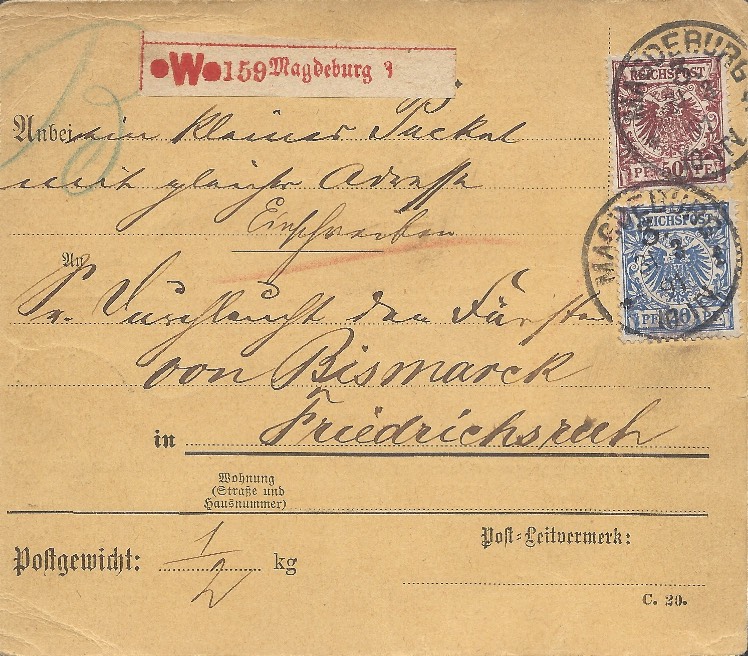 ●W● 159 Magdeburg
MAGDEBURG
REICHSPOST
PFENNIG 50 PFENNIG
Anbei ein kleines Packet
mit gleicher Adresse
Einschreiben
MAGDEBURG
REICHSPOST
PFENNIG 20 PFENNIG
An
Sr. Durchlaucht den Fürsten
von Bismarck
in Friedrichsruh
Wohnung
(Straße und
Hausnummer)
Postgewicht: 1/2 kg
Post-Leitvermerk:
C. 20.